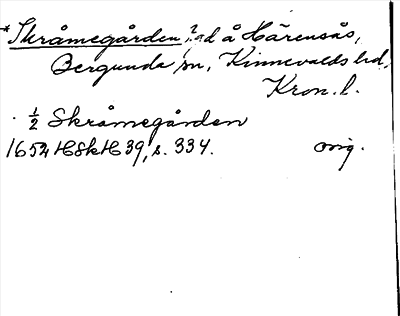 *Skråmegården, ?gd å Härensås,
Bergunda sn, Kinnevalds hd,
Kron. l.
½ Skråmegården
1654 HSkH 39, s. 334. orig.